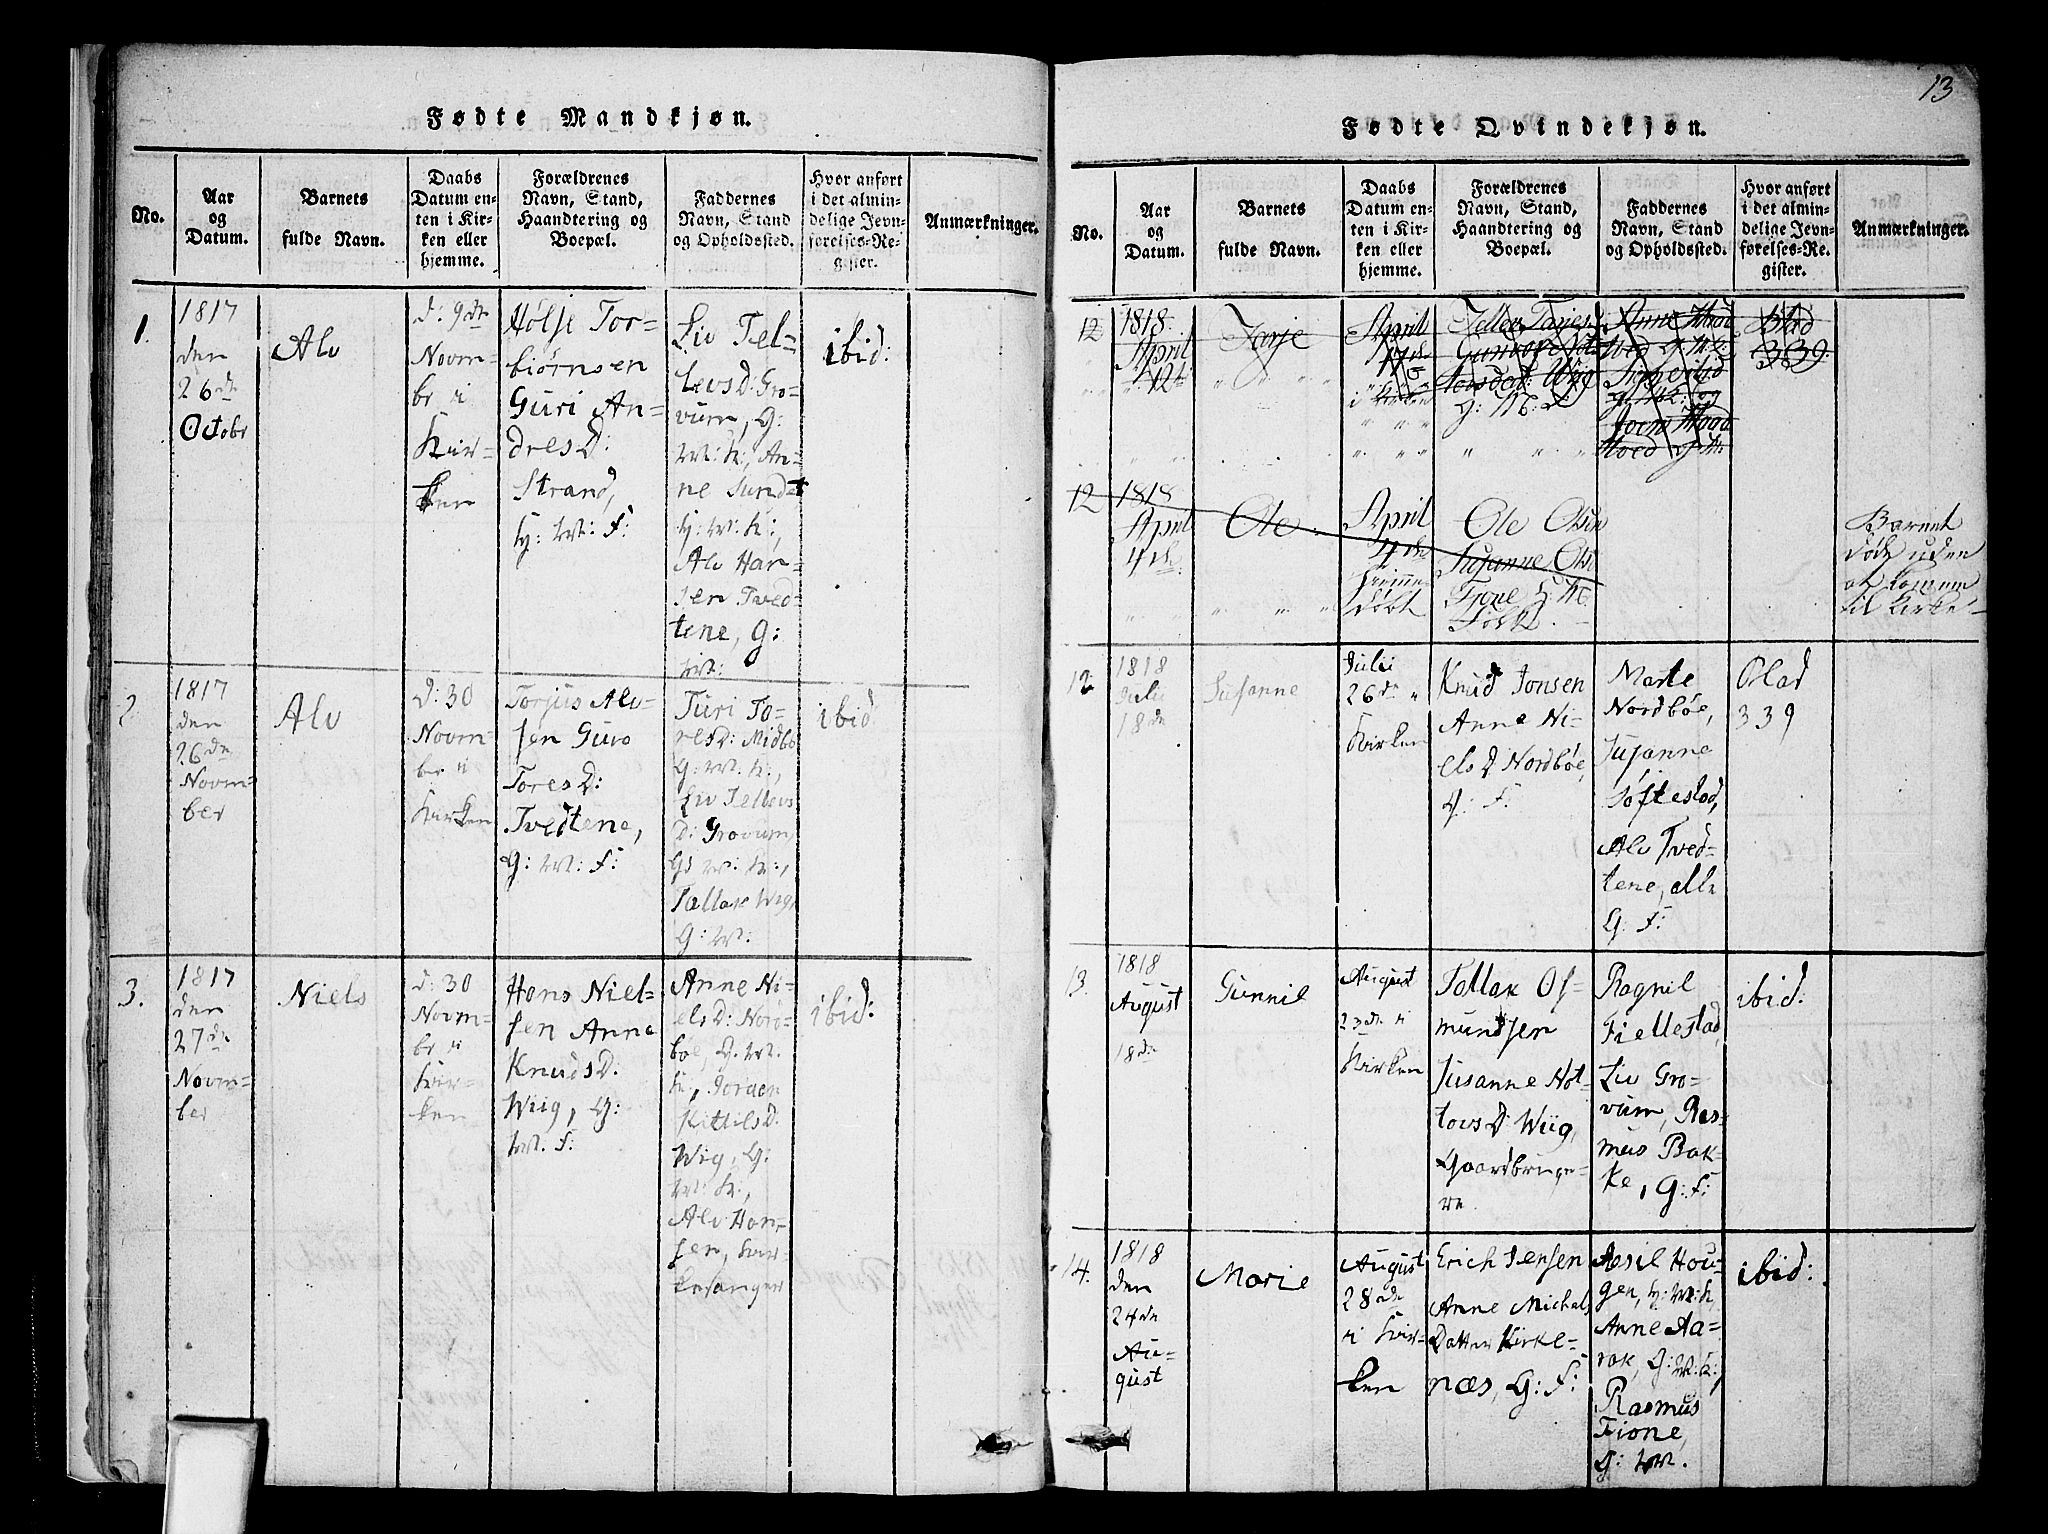 Fødte Mandkjøn.
No.
Aar
og
Datum.
Barnets
fulde Navn.
Daabs
Datum en-
ten i Kir-
ken eller
hjemme.
Forældrenes
Navn, Stand,
Haandtering og
Boepæl.
Faddernes
Navn, Stand
og Opholdssted.
Hvor anført
i det almin-
delige Jevn-
førelses-Re-
gister.
Anmærkninger.
1.
1817
den
26de
Octobr
Alv
d: 9de
Novm-
br i
Kir-
ken
Hølje Tor-
biørnsen
Guri An-
dresD:
Strand,
H: M: F:
Liv Tel-
levsD: Gro-
vum, G:
M: K:, An-
ne Sundt
H: M: K:,
Alv Han-
sen Tved-
tene, G:
M:
ibid:
2
1817
den
26de
Novm-
ber
Alv
D: 30
Novm-
br i
Kirken
Torjus Alv-
sen Guro
ToresD:
Tvedtene,
G: M: F:
Turi To-
resD: Midbø
G: M: K:,
Liv Tellevs
D: Grovum,
G: M: K:,
Tallak Wig,
G: M:
ibid:
3.
1817
den
27de
Novm-
ber
Niels
d: 30
Novm-
br i
Kir-
ken
Hans Niel-
sen Anne
KnudsD:
Wiig, G:
M: F:
Anne Ni-
elsD: Nord-
bøe, G: M:
K:, Jorgen
KittilsD:
Wig, G:
M: K:,
Alv Han-
sen, Kir-
kesanger
ibid:
13
Fødte Qvindekjøn.
No.
Aar
og
Datum.
Barnets
fulde Navn.
Daabs
Datum en-
ten i Kir-
ken eller
hjemme.
Forældrenes
Navn, Stand,
Haandtering og
Boepæl.
Faddernes
Navn, Stand
og Opholdssted.
Hvor anført
i det almin-
delige Jevn-
førelses-Re-
gister.
Anmærkninger.
12
1818
April
12te
Tarje
April
17de
i Kirken
Wiig
G: M: F
Anne
G: M:
og
Blad
339.
12
1818
April
4de
Ole
April
4de
hjemme
døbt
Ole Olsen
Susanne Ols
Fione H: M:
Folk.
Barnet
døde uden
at komme
til Kirke
12
1818
Julii
18de
Susanne
Julii
26de i
Kirken
Knud Jonsen
Anne Ni-
elsD Nordbøe,
G: F:
Marte
Nordbøe,
Susanne
Søftestad,
Alv Tved-
tene, alle
G: F:
Blad
339
13.
1818
August
18de
Gunnil
August
23de i
Kirken
Tallak Os-
mundsen
Susanne Not-
tovsD: Wiig,
Gaardbruge-
re.
Ragnil
Fiellestad,
Liv Gro-
vum, Ras-
mus Bak-
ke, G: F:
ibid.
14.
1818
den
24de
Au-
gust
Marie
August
28de
i Kir-
ken
Erich Jensen
Anne Michels
Datter Kirke-
næs, G: F:
Aesil Hou-
gen, H: M: K,
Anne Aa-
rak, G: M: K:,
Rasmus
Fione,
G: M.
ibid: